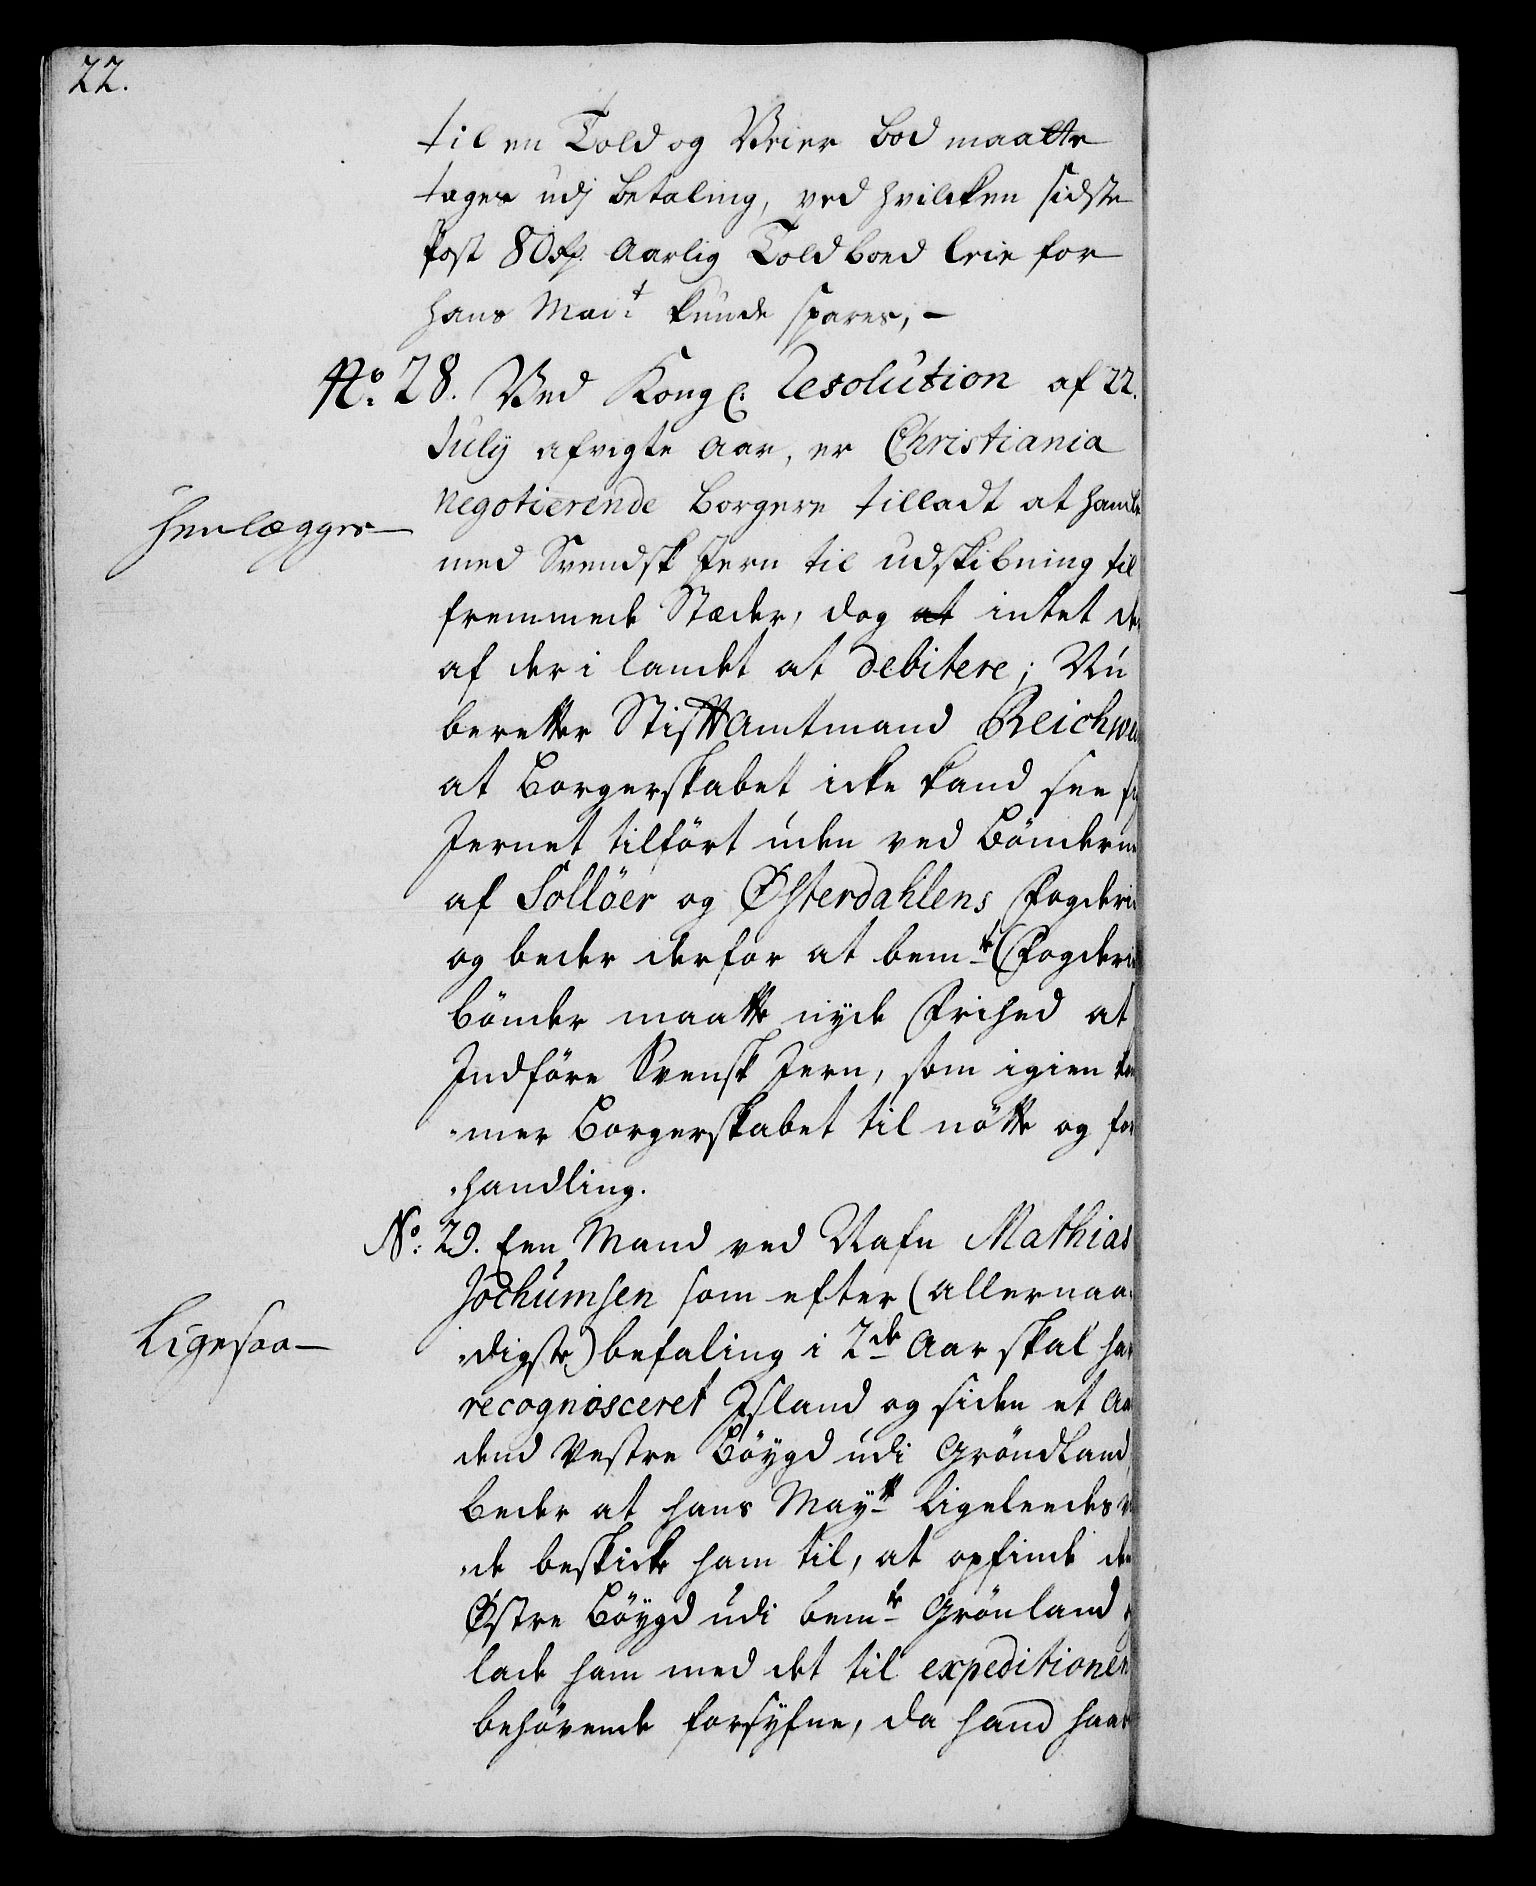 22.
til en Told og Veier bod maatte
tages udj betaling, ved hvilcken sidste
Post 80 Rdr. Aarlig Toldboed leie for
hans Mai:t kunde spares, -
No: 28. Ved Kongl: Resolution af 22.
July afvigte Aar, er Christiania
negotierende borgere tilladt at handle
Henlægges
med Svendsk Jern til udskibning til
fremmede Stæder, dog at intet der
af der i landet at debitere; Nu
beretter Stiftamtmand Reichwe
at Borgerskabet icke kand see sig
Jernet tilført uden ved Bønderne
af Solløer og Østerdahlens Fogderie
og beder derfor at bemte Fogderie
bønder maatte nyde Frihed at
Indføre Svensk Jern, som igien kom
mer Borgerskabet til nøtte og for
handling.
No: 29. Een Mand ved Nafn Mathias
Jochumsen som efter (allernaa-
digste) befaling i 2de Aar skal have
Ligesaa
recognosceret Jsland og siden et Aar
dend Vestre Bøygd udi Grøndland,
beder at hans Maytt ligeleedes v
de beskicke ham til, at opfinde den
Østre Bøygd udi bemte Grønland og
lade ham med det til expeditionen
behøvende forsyfne, da hand haab